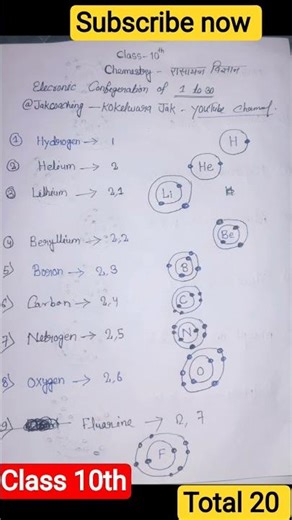 Subscribe now
Class-10th
Chemestry - रासायन विज्ञान
Elecronic Configeration of 1 to 20
@Jakcoaching - Kokelwara Jak - YouTube Channel
① Hydrogen → 1 H
② Helium → 2 He
③ Lithium → 2,1 Li
④ Beryllium → 2,2 Be
5) Boron → 2,3 B
6) Carbon → 2,4 C
7) Netrogen → 2,5 N
8) Oxygen → 2,6 O
9) Fluarine → 2,7
F
Class 10th
Total 20